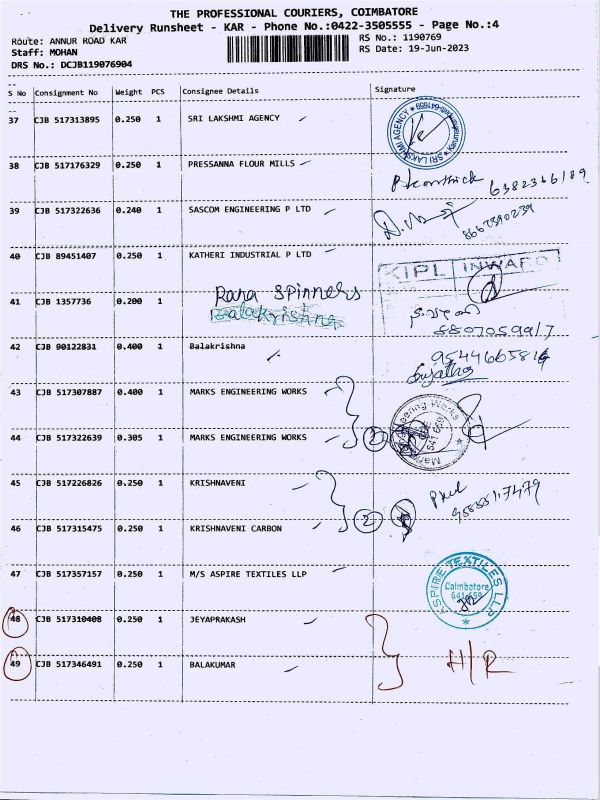 THE PROFESSIONAL COURIERS, COIMBATORE
Delivery Runsheet - KAR - Phone No.:0422-3505555 - Page No.:4
Route: ANNUR ROAD KAR
Staff: MOHAN
DRS No.: DCJB119076904
RS No.: 1190769
RS Date: 19-Jun-2023
S No Consignment No Weight PCS Consignee Details Signature
37 CJB 517313895 0.250 1 SRI LAKSHMI AGENCY
SRI LAKSHMI AGENCY
38 CJB 517176329 0.250 1 PRESSANNA FLOUR MILLS
6382366189
39 CJB 517322636 0.240 1 SASCOM ENGINEERING P LTD
40 CJB 89451407 0.250 1 KATHERI INDUSTRIAL P LTD
KIPL INWARD
41 CJB 1357736 0.200 1 Rana Spinners
Balakrishna
42 CJB 90122831 0.400 1 Balakrishna
Sujatha
43 CJB 517307887 0.400 1 MARKS ENGINEERING WORKS
44 CJB 517322639 0.305 1 MARKS ENGINEERING WORKS
2
45 CJB 517226826 0.250 1 KRISHNAVENI
46 CJB 517315475 0.250 1 KRISHNAVENI CARBON
2
47 CJB 517357157 0.250 1 M/S ASPIRE TEXTILES LLP
ASPIRE TEXTILES LLP
Coimbatore
641 659
48 CJB 517310408 0.250 1 JEYAPRAKASH
49 CJB 517346491 0.250 1 BALAKUMAR
H/R